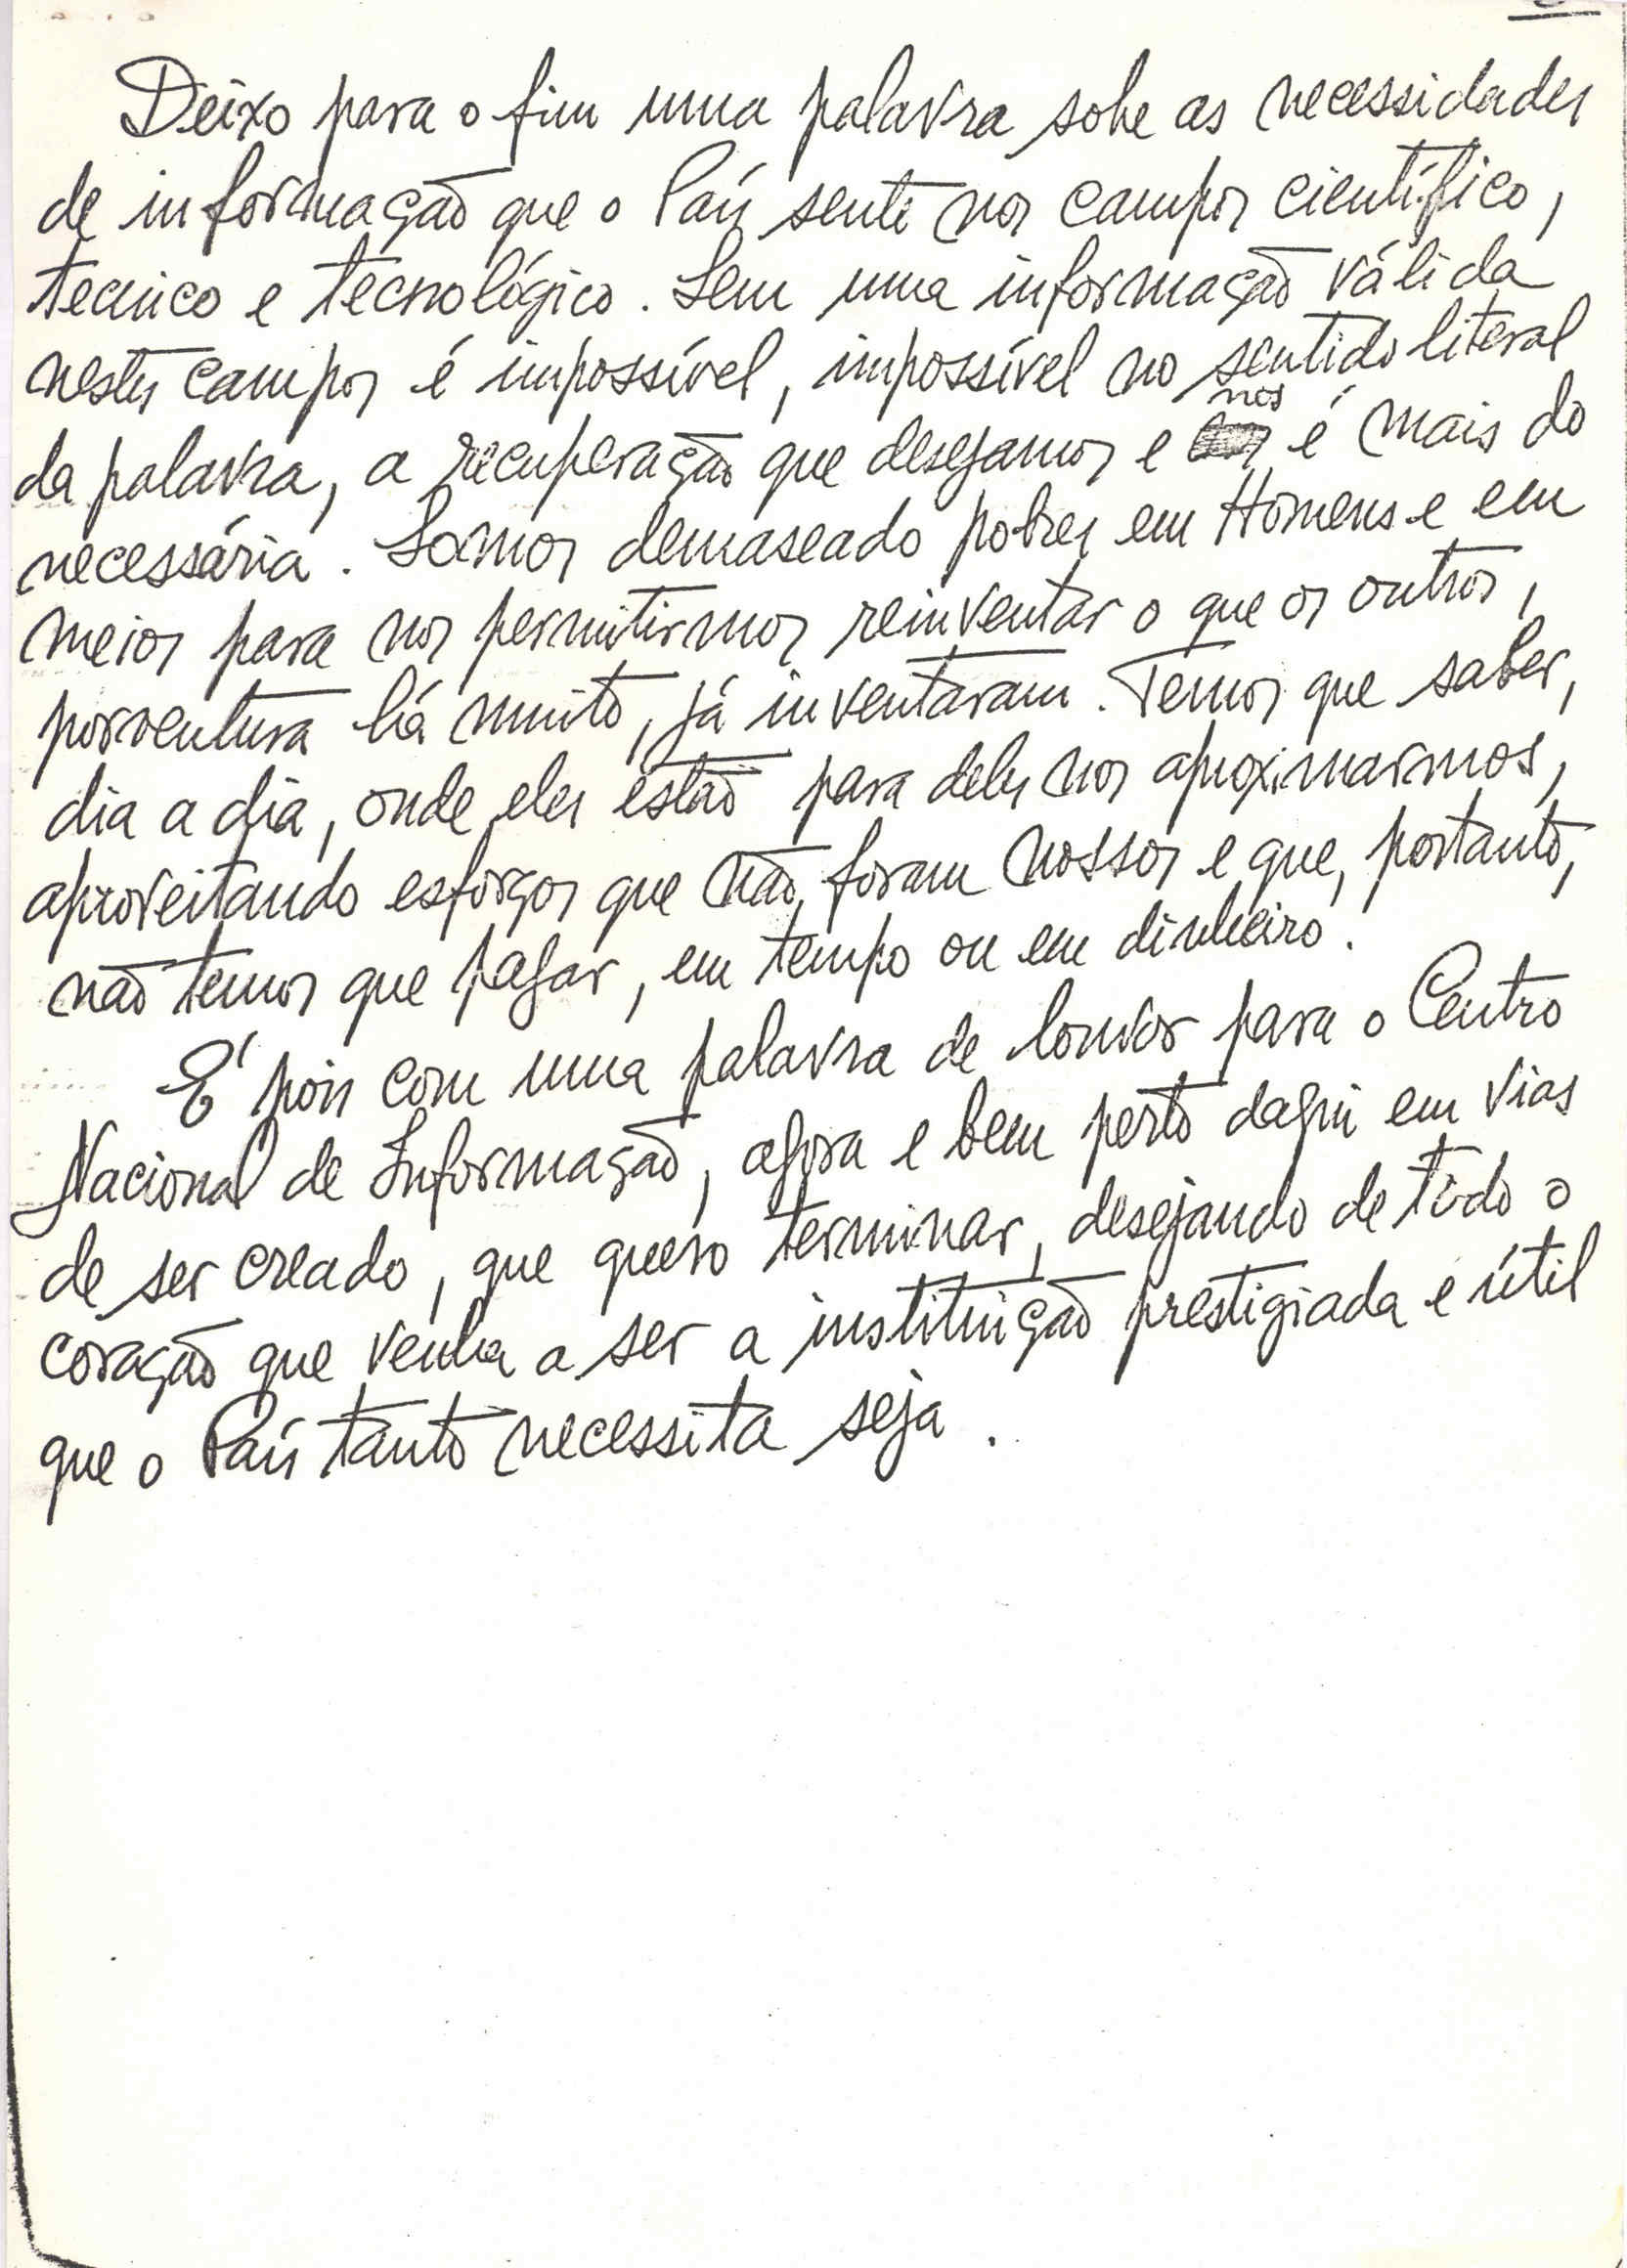 Deixo para o fim uma palavra sobre as necessidades
de informação que o País sente nos campos científico,
tecnico e tecnológico. Sem uma informação válida
nestes campos é impossível, impossível no sentido literal
da palavra, a recuperação que desejamos e nos é mais do
necessária. Somos demaseado pobres em Homens e em
meios para nos permitirmos reinventar o que os outros,
porventura há muito, já inventaram. Temos que saber,
dia a dia, onde eles estão para deles nos aproximarmos,
aproveitando esforços que não foram nossos e que, portanto,
não temos que pagar, em tempo ou em dinheiro.
É pois com uma palavra de louvor para o Centro
Nacional de Informação, agora e bem perto daqui em vias
de ser creado, que quero terminar, desejando de todo o
coração que venha a ser a instituição prestigiada e útil
que o País tanto necessita seja.